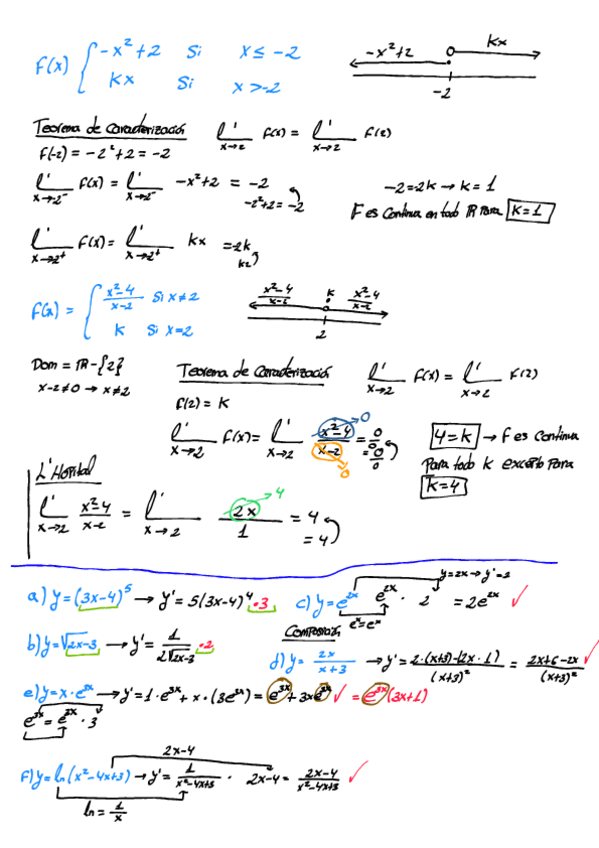 F(x) { -x²+2 Si x ≤ -2
Kx Si x > -2
-x²+2 Kx
-2
Teorema de Caracterización lím x→2 F(x) = lím x→2 F(2)
F(-2) = -2²+2 = -2
lím x→2⁻ F(x) = lím x→2⁻ -x²+2 = -2
-2²+2 = -2
-2=2K → K=1
F es Continua en todo ℝ Para K=1
lím x→2⁺ F(x) = lím x→2⁺ Kx = 2K
K2
F(x) = { x²-4/x-2 Si x≠2
K Si x=2
x²-4/x-2 K x²-4/x-2
2
Dom = ℝ-{2}
x-2≠0 → x≠2
Teorema de Caracterización lím x→2 F(x) = lím x→2 F(2)
F(2) = K
lím x→2 F(x) = lím x→2 x²-4/x-2 = 0/0
→0
→0
= 0/0
4=K → F es Continua
Para todo K excepto Para
K=4
L'Hopital
lím x→2 x²-4/x-2 = lím x→2 2x/1 = 4
→4
= 4
a) y=(3x-4)⁵ → y'= 5(3x-4)⁴·3
b) y=√2x-3 → y'= 1/2√2x-3 ·2
c) y=e²ˣ e²ˣ · 2 = 2e²ˣ ✓
y=2x → y'=2
eˣ=eˣ
Composición
d) y= 2x/x+3 → y'= 2·(x+3)-(2x·1)/(x+3)² = 2x+6-2x/(x+3)² ✓
e) y=x·e³ˣ → y'=1·e³ˣ + x·(3e³ˣ) = e³ˣ + 3xe³ˣ ✓ = e³ˣ(3x+1)
e³ˣ = e³ˣ · 3
2x-4
F) y=ln(x²-4x+3) → y'= 1/x²-4x+3 · 2x-4 = 2x-4/x²-4x+3 ✓
ln = 1/x